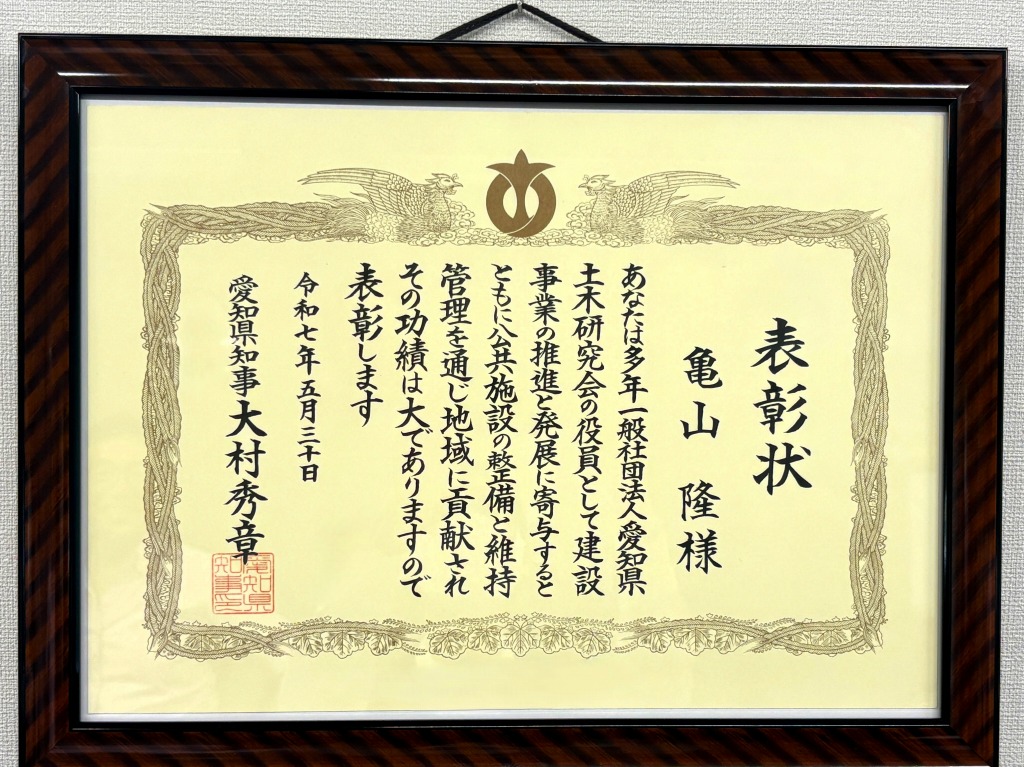 表彰状
亀山 隆様
あなたは多年一般社団法人愛知県
土木研究会の役員として建設
事業の推進と発展に寄与すると
ともに公共施設の整備と維持
管理を通じ地域に貢献され
その功績は大でありますので
表彰します
令和七年五月三十日
愛知県知事大村秀章
愛知県
知事之印